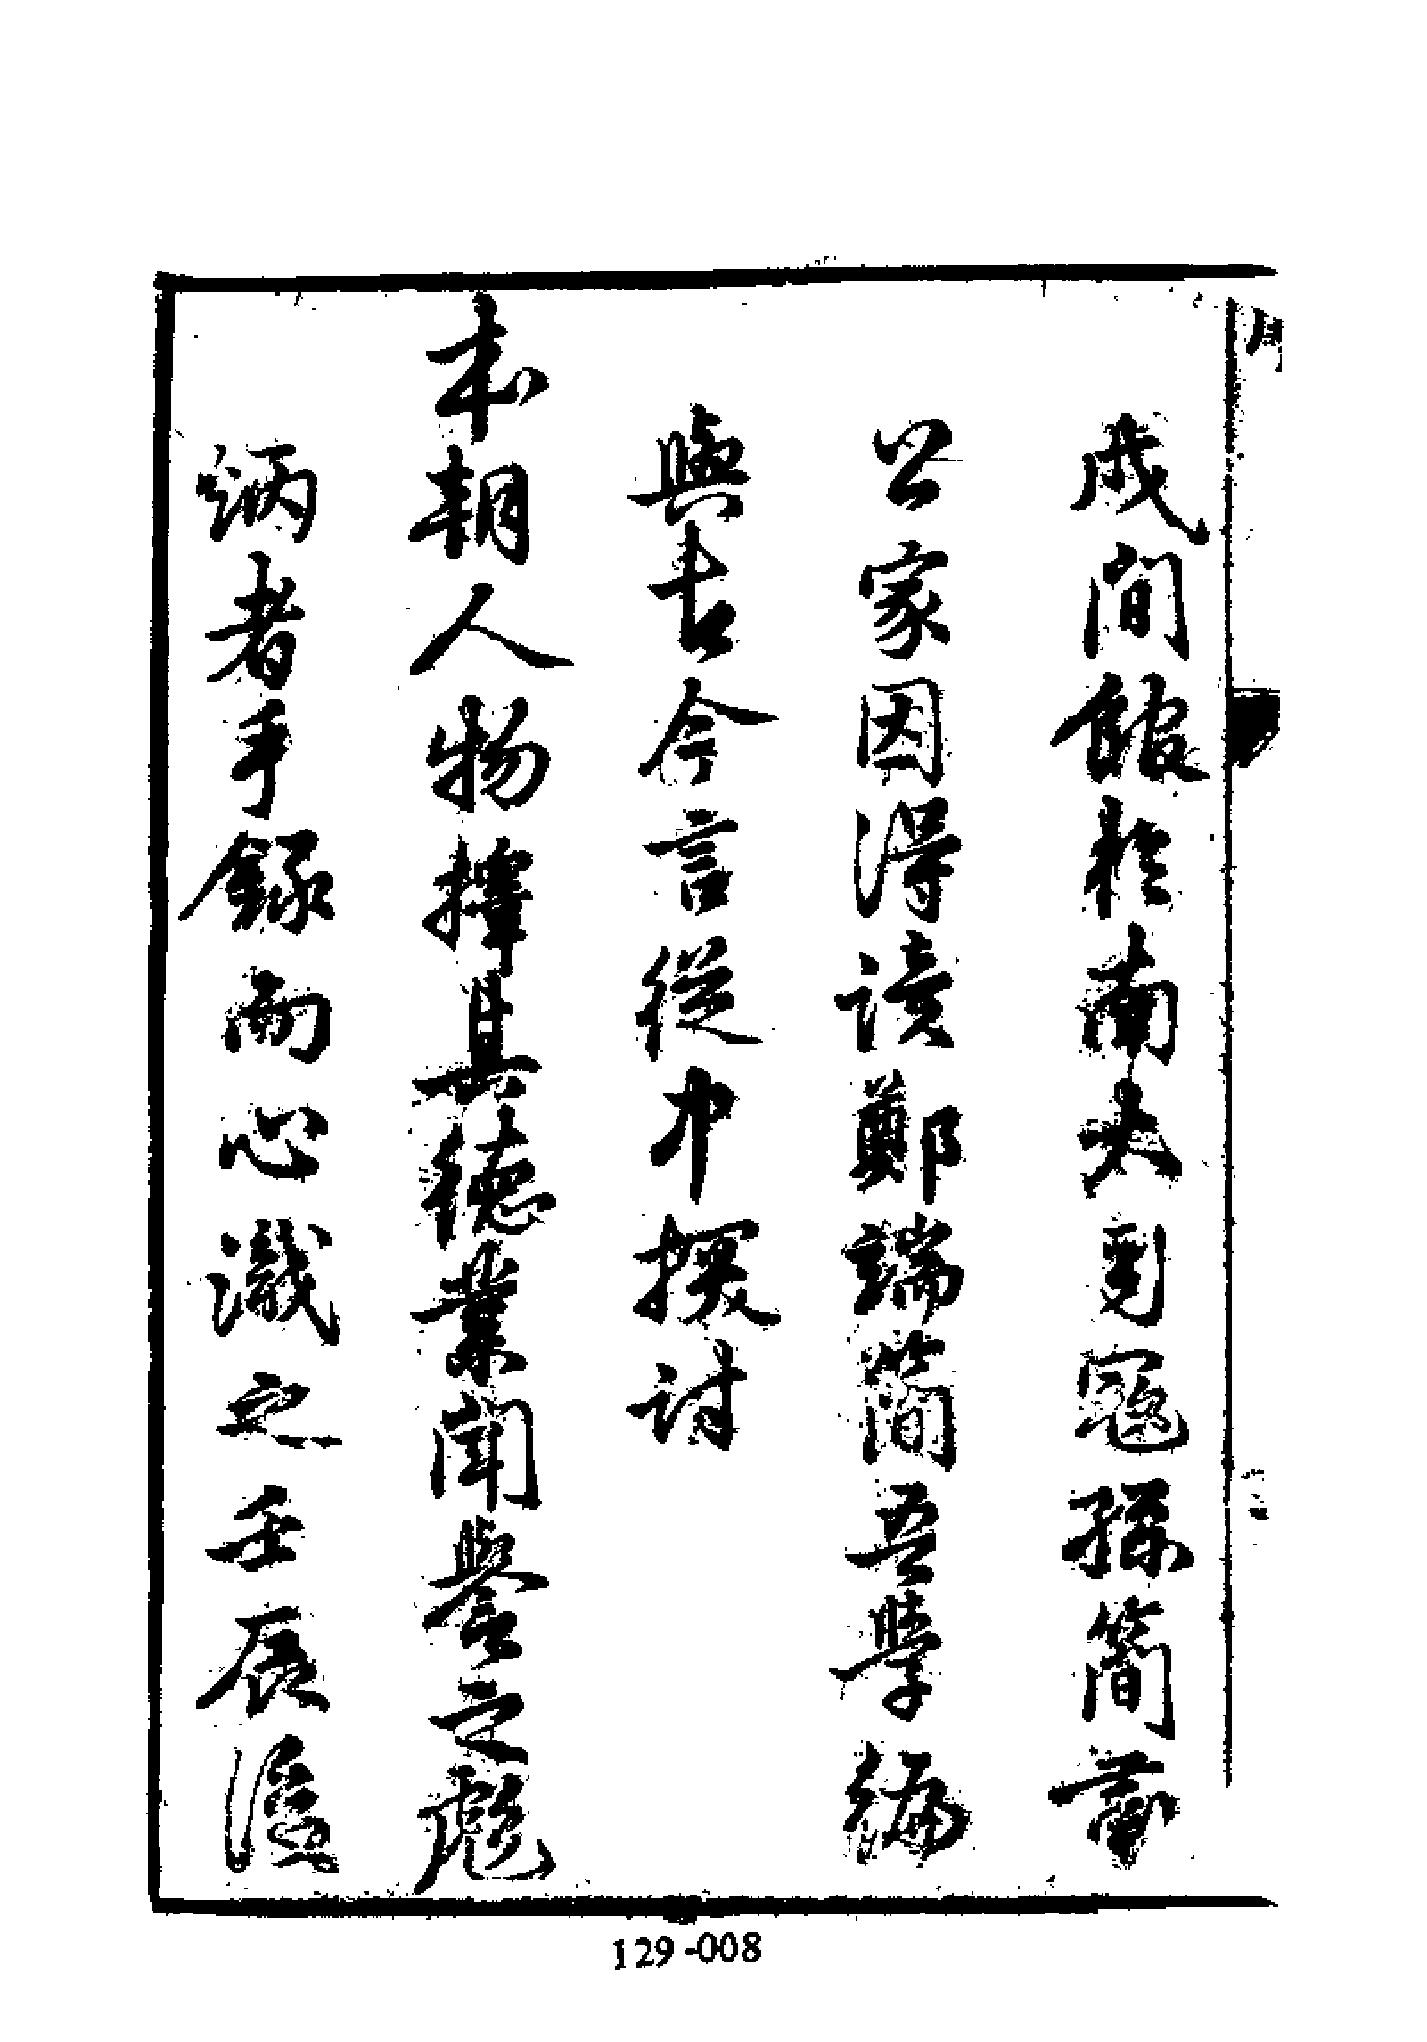 戌間館於南大司寇孫簡肅
公家因得讀鄭端簡吾學編
與古今言從中探討
本朝人物擇其德業聞譽之彪
炳者手錄而心識之壬辰後
129-008